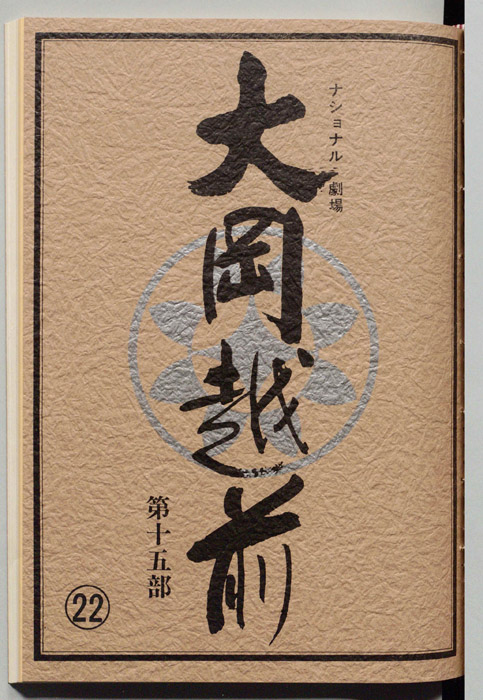 ナショナル劇場
大岡越前
第十五部
22